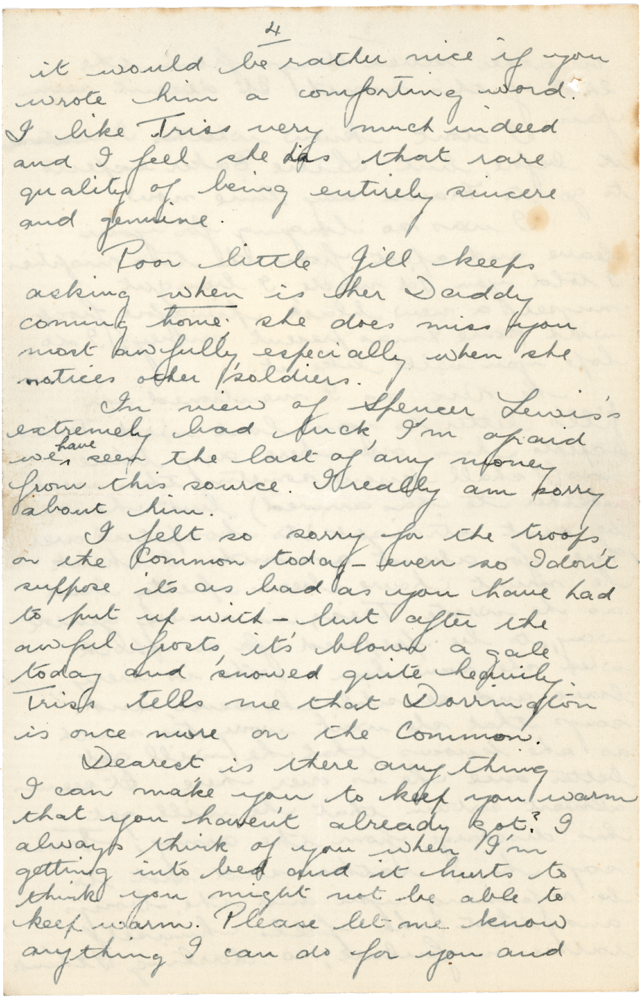 4
it would be rather nice if you
wrote him a comforting word.
I like Triss very much indeed
and I feel she has that rare
quality of being entirely sincere
and genuine.
Poor little Jill keeps
asking when is her Daddy
coming home; she does miss you
most awfully especially when she
notices other soldiers.
In view of Spencer Lewis's
extremely bad luck, I'm afraid
we have seen the last of any money
from this source. I really am sorry
about him.
I felt so sorry for the troops
on the Common today - even so I don't
suppose it's as bad as you have had
to put up with - but after the
awful frosts, it's blown a gale
today and snowed quite heavily.
Triss tells me that Dorrington
is once more on the Common.
Dearest is there anything
I can make you to keep you warm
that you haven't already got? I
always think of you when I'm
getting into bed and it hurts to
think you might not be able to
keep warm. Please let me know
anything I can do for you and